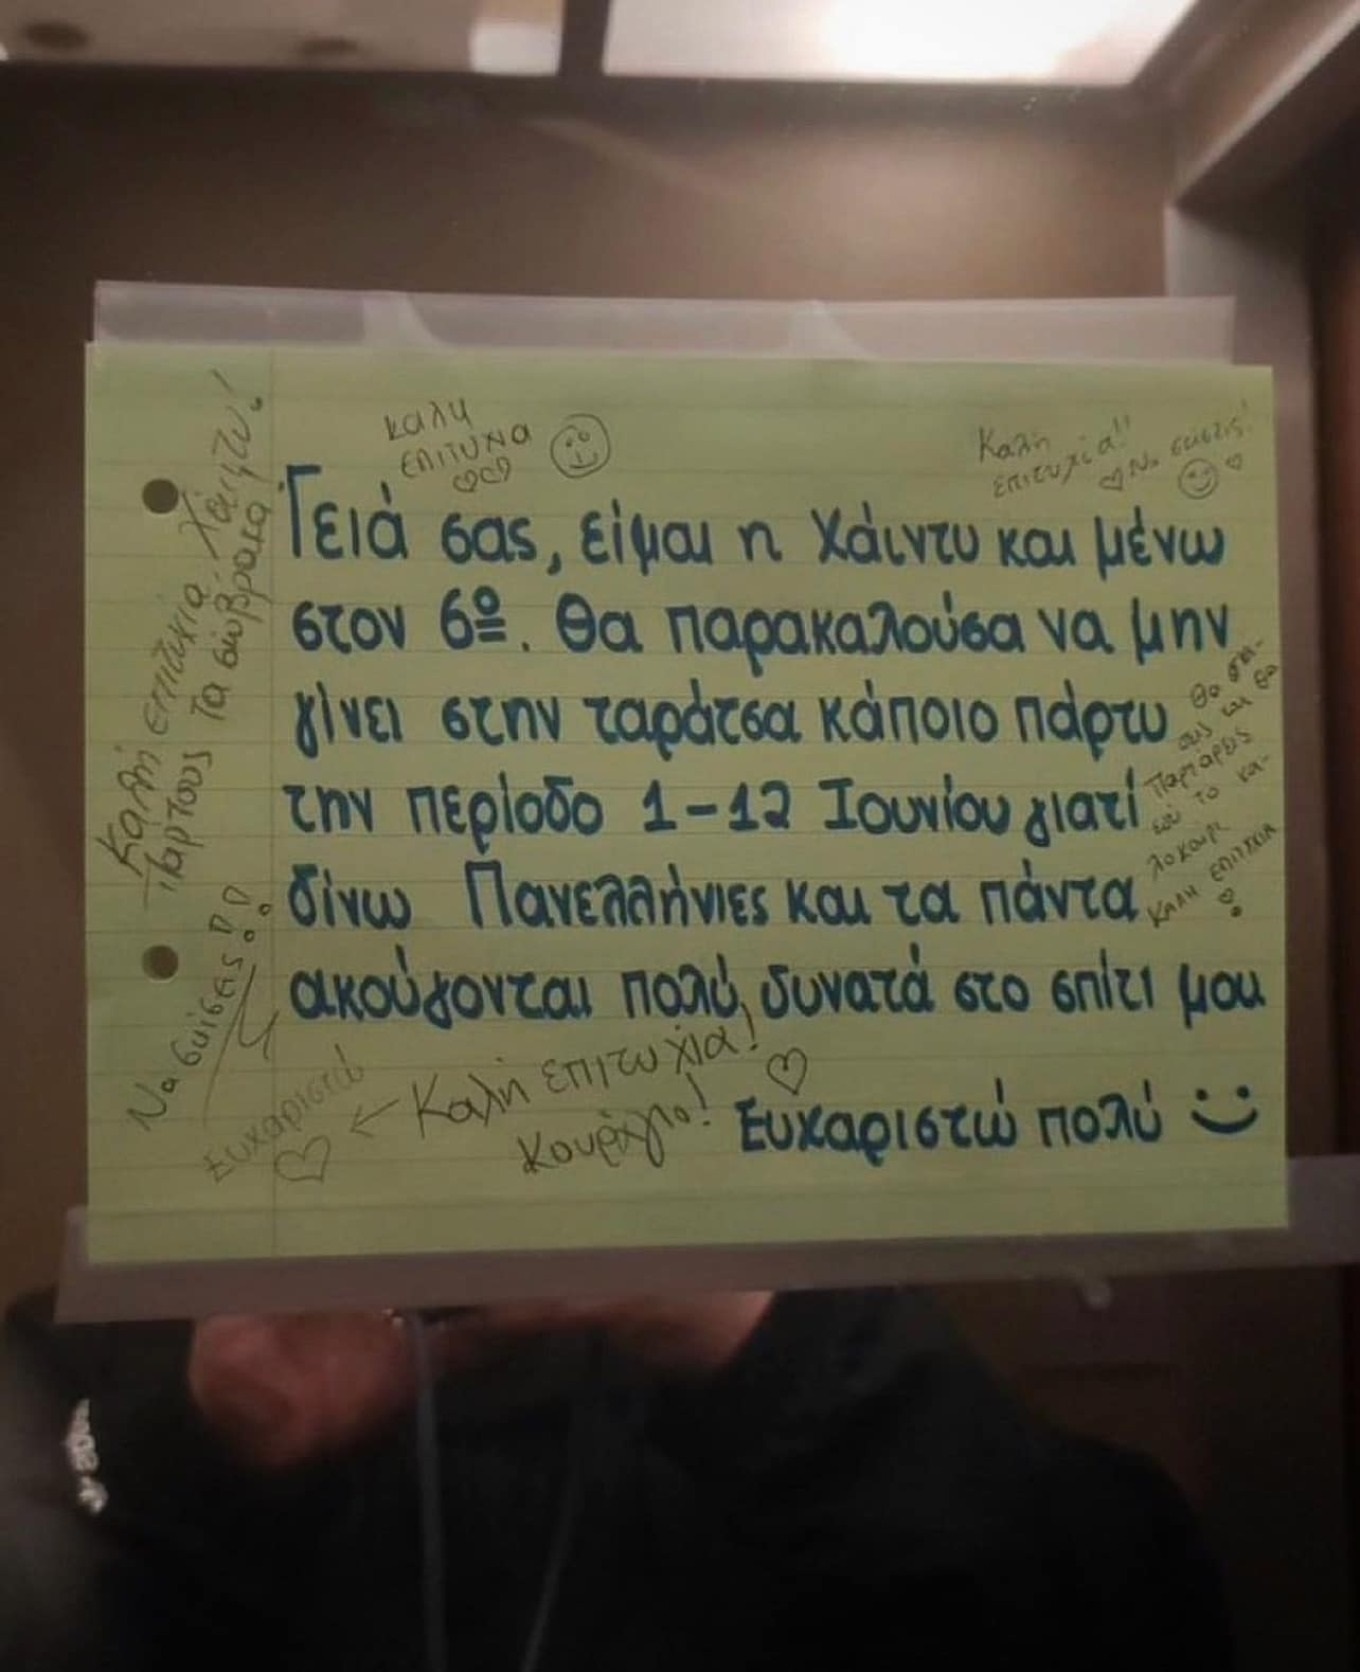 καλη
επιτυχια
Καλή
επιτυχία!!
Να σκίσεις!
Γειά σας, είμαι η Χάιντυ και μένω
στον 6º. Θα παρακαλούσα να μην
γίνει στην ταράτσα κάποιο πάρτυ
την περίοδο 1-12 Ιουνίου γιατί
δίνω Πανελλήνιες και τα πάντα
ακούγονται πολύ δυνατά στο σπίτι μου
Ευχαριστώ πολύ :)
Καλή επιτυχία Χάιντυ!
Παρτους τα σώβρακα
Να σκίσεις!!
Ευχαριστώ
← Καλή επιτυχία!
Κουράγιο!
Θα σκί-
σεις και θα
παρταρεις
το κα-
λοκαιρι
ΚΑΛΗ ΕΠΙΤΥΧΙΑ